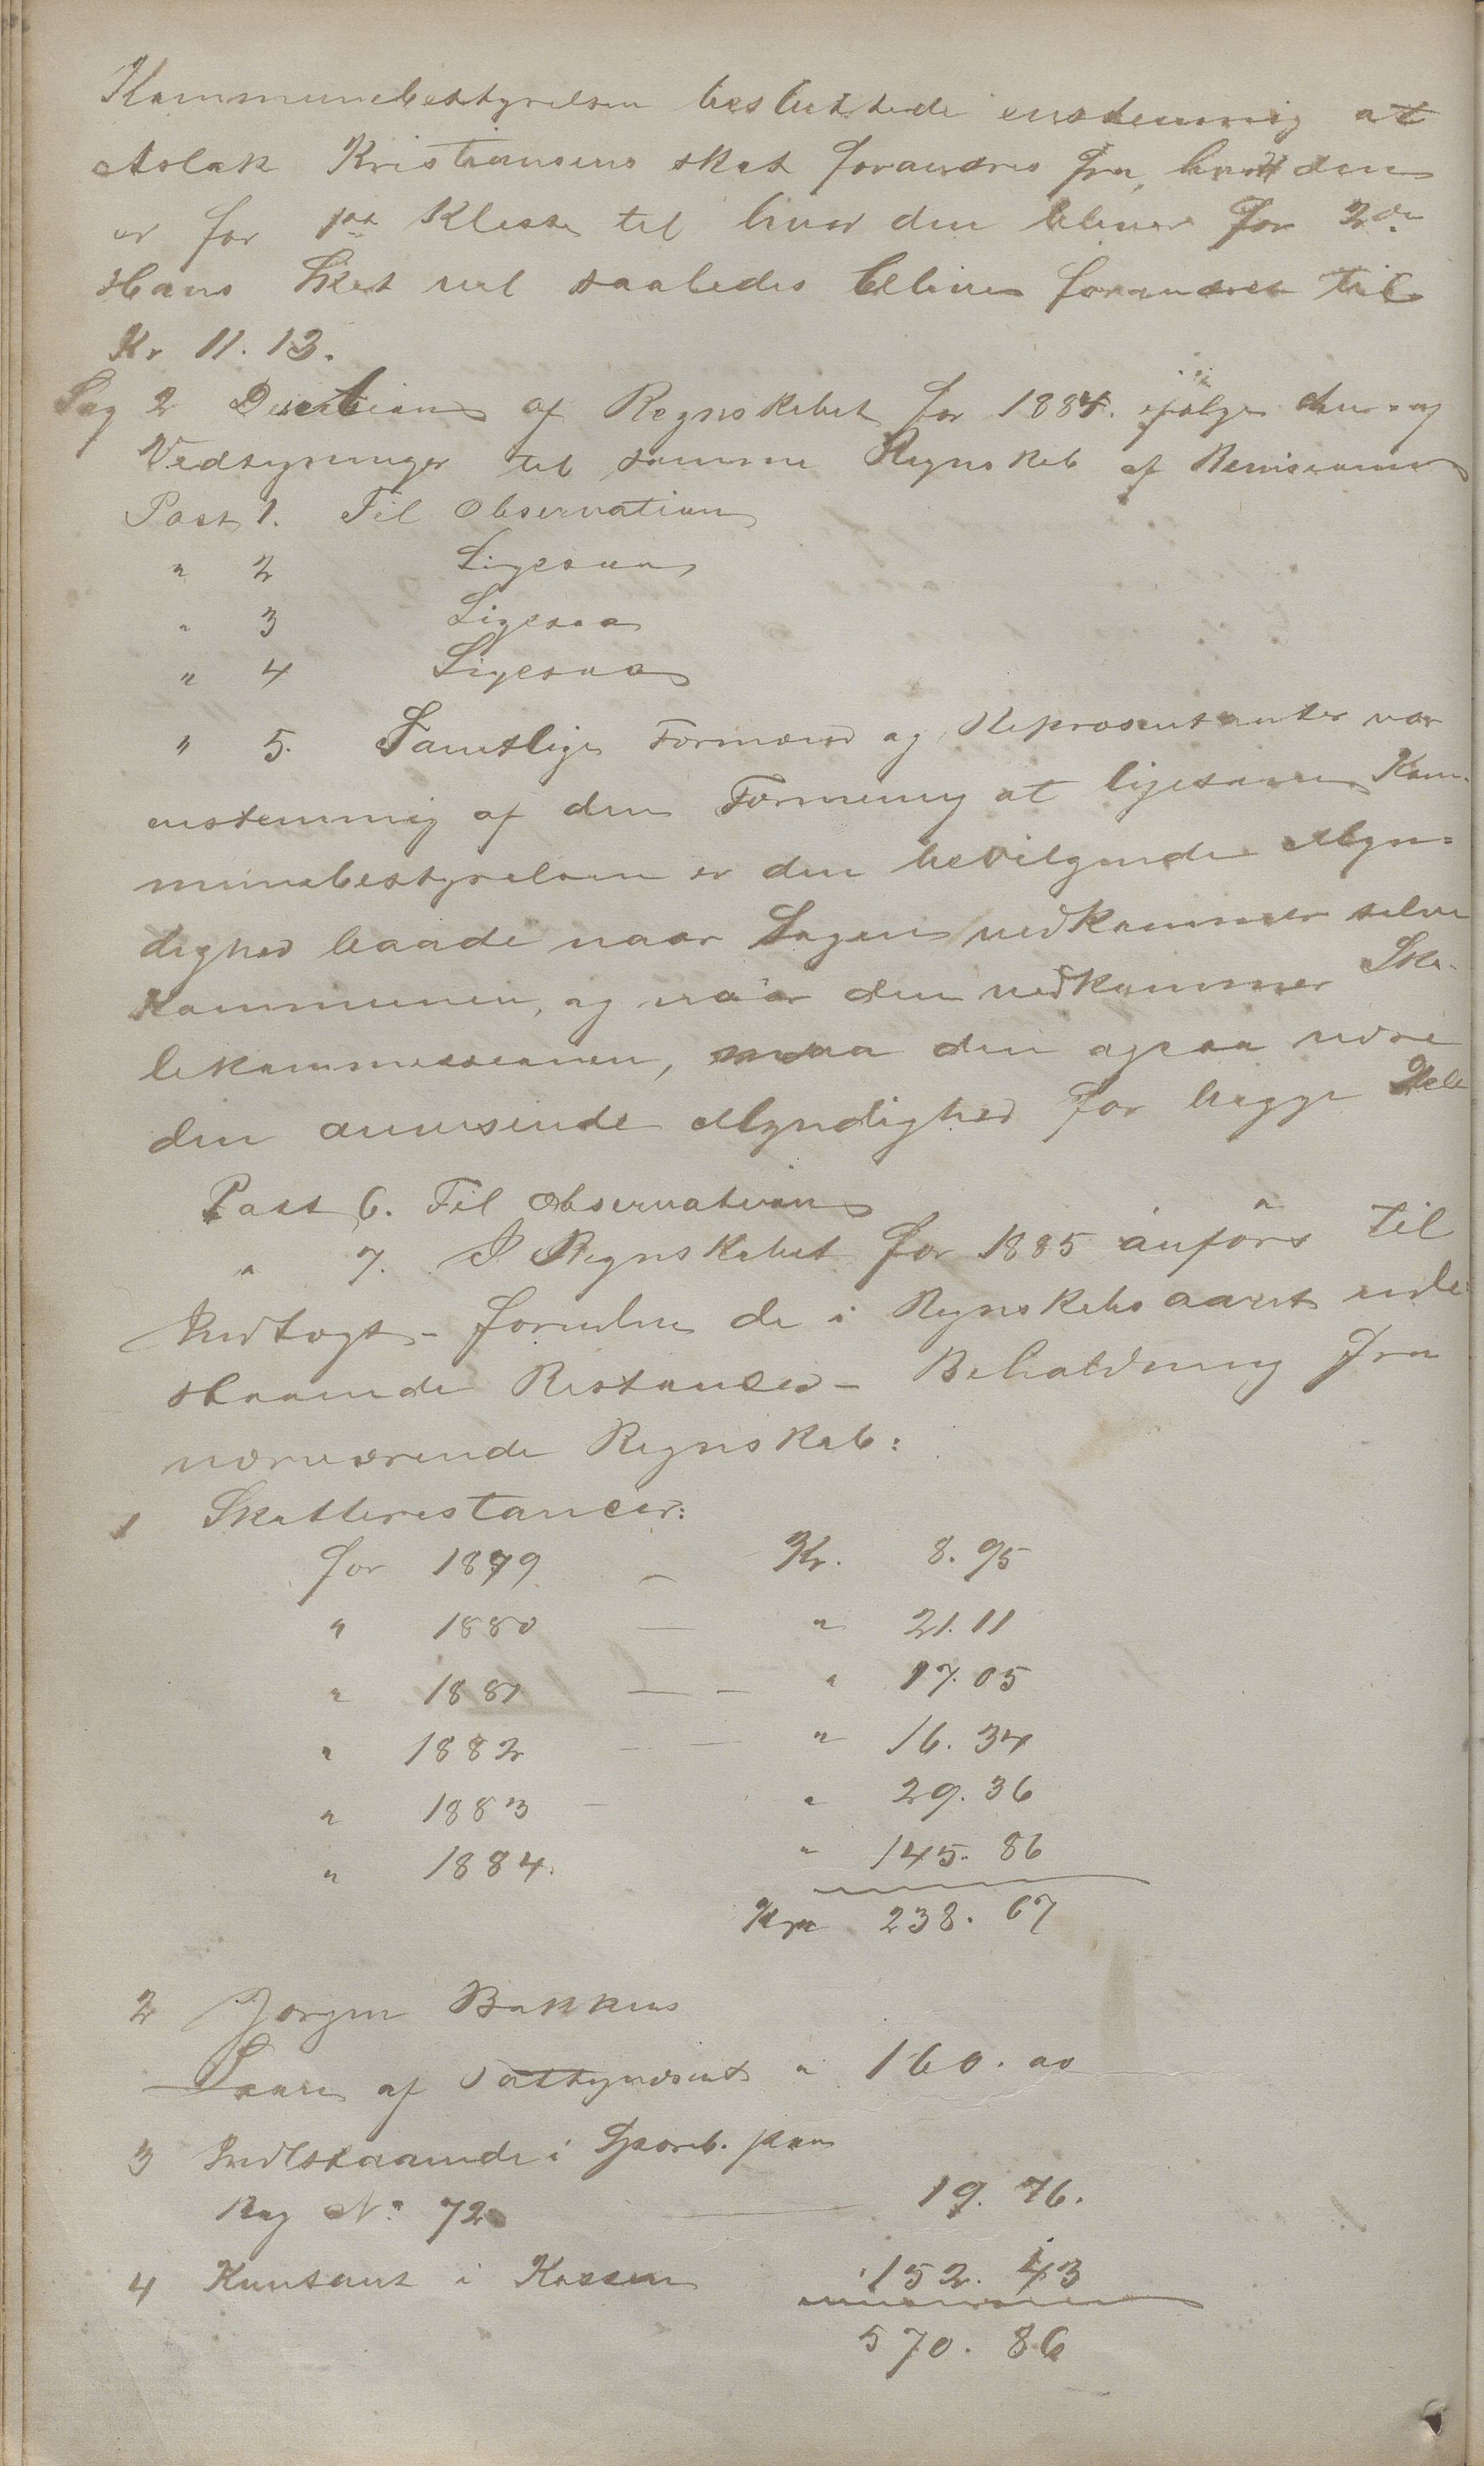 Kommunebestyrelsen besluttede enstemmig at
Aslak Kristiansens skat forandres fra, hvad den
er for 1ste Klasse til hvad den bliver for 2den
Hans Skat vil saaledes blive forandret til
Kr 11.13.
Sag 2 Decision af Regnskabet for 1884. ifølge
Vedtegninger til samme Regnskab af Revisionen
Post 1. Til Observation
" 2 Ligesaa
" 3 Ligesaa
" 4 Ligesaa
" 5. Samtlige Formænd og Repræsentanter var
enstemmig af den Formening at ligesom Kom-
munebestyrelsen er den bevilgende Myn-
dighed baade naar Sagen vedkommer selve
Kommunen, og naar den vedkommer Sko-
lekommissionen, maa den ogsaa være
den anvisende Myndighed for begge Dele
Post 6. Til Observation
" 7. I Regnskabet for 1885 anføres til
Indtægt - foruden de i Regnskabsaaret inde-
staaende Restancer - Beholdning fra
nærværende Regnskab:
1 Skatterestancer:
for 1879 — Kr. 8.95
" 1880 — " 21.11
" 1881 — — " 17.05
" 1882 — — " 16.34
" 1883 — " 29.36
" 1884. " 145.86
Kr 238.67
2 Jørgen Bakkens
Laan af " 160.00
3 Indestaaende i Spareb. paa
Bog No 72 — 19.76.
4 Kontant i Kassen 152.43
570.86